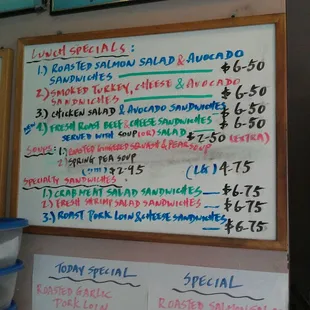 LUNCH SPECIALS:
1.) ROASTED SALMON SALAD & AVOCADO
SANDWICHES $6-50
2.) SMOKED TURKEY, CHEESE & AVOCADO
SANDWICHES $6-50
3.) CHICKEN SALAD & AVOCADO SANDWICHES $6-50
4.) FRESH ROAST BEEF & CHEESE SANDWICHES $6-50
SERVED WITH SOUP (OR) SALAD $2-50 (EXTRA)
SOUPS: 1.) ROASTED BUTTERNUT SQUASH & PEAR SOUP
2.) SPRING PEA SOUP
$2-95 (LG) 4-75
SPECIALTY SANDWICHES:
1.) CRAB MEAT SALAD SANDWICHES $6-75
2.) FRESH SHRIMP SALAD SANDWICHES $6-75
3.) ROAST PORK LOIN & CHEESE SANDWICHES $6-75
TODAY SPECIAL
ROASTED GARLIC
PORK LOIN
SPECIAL
ROASTED SALMON